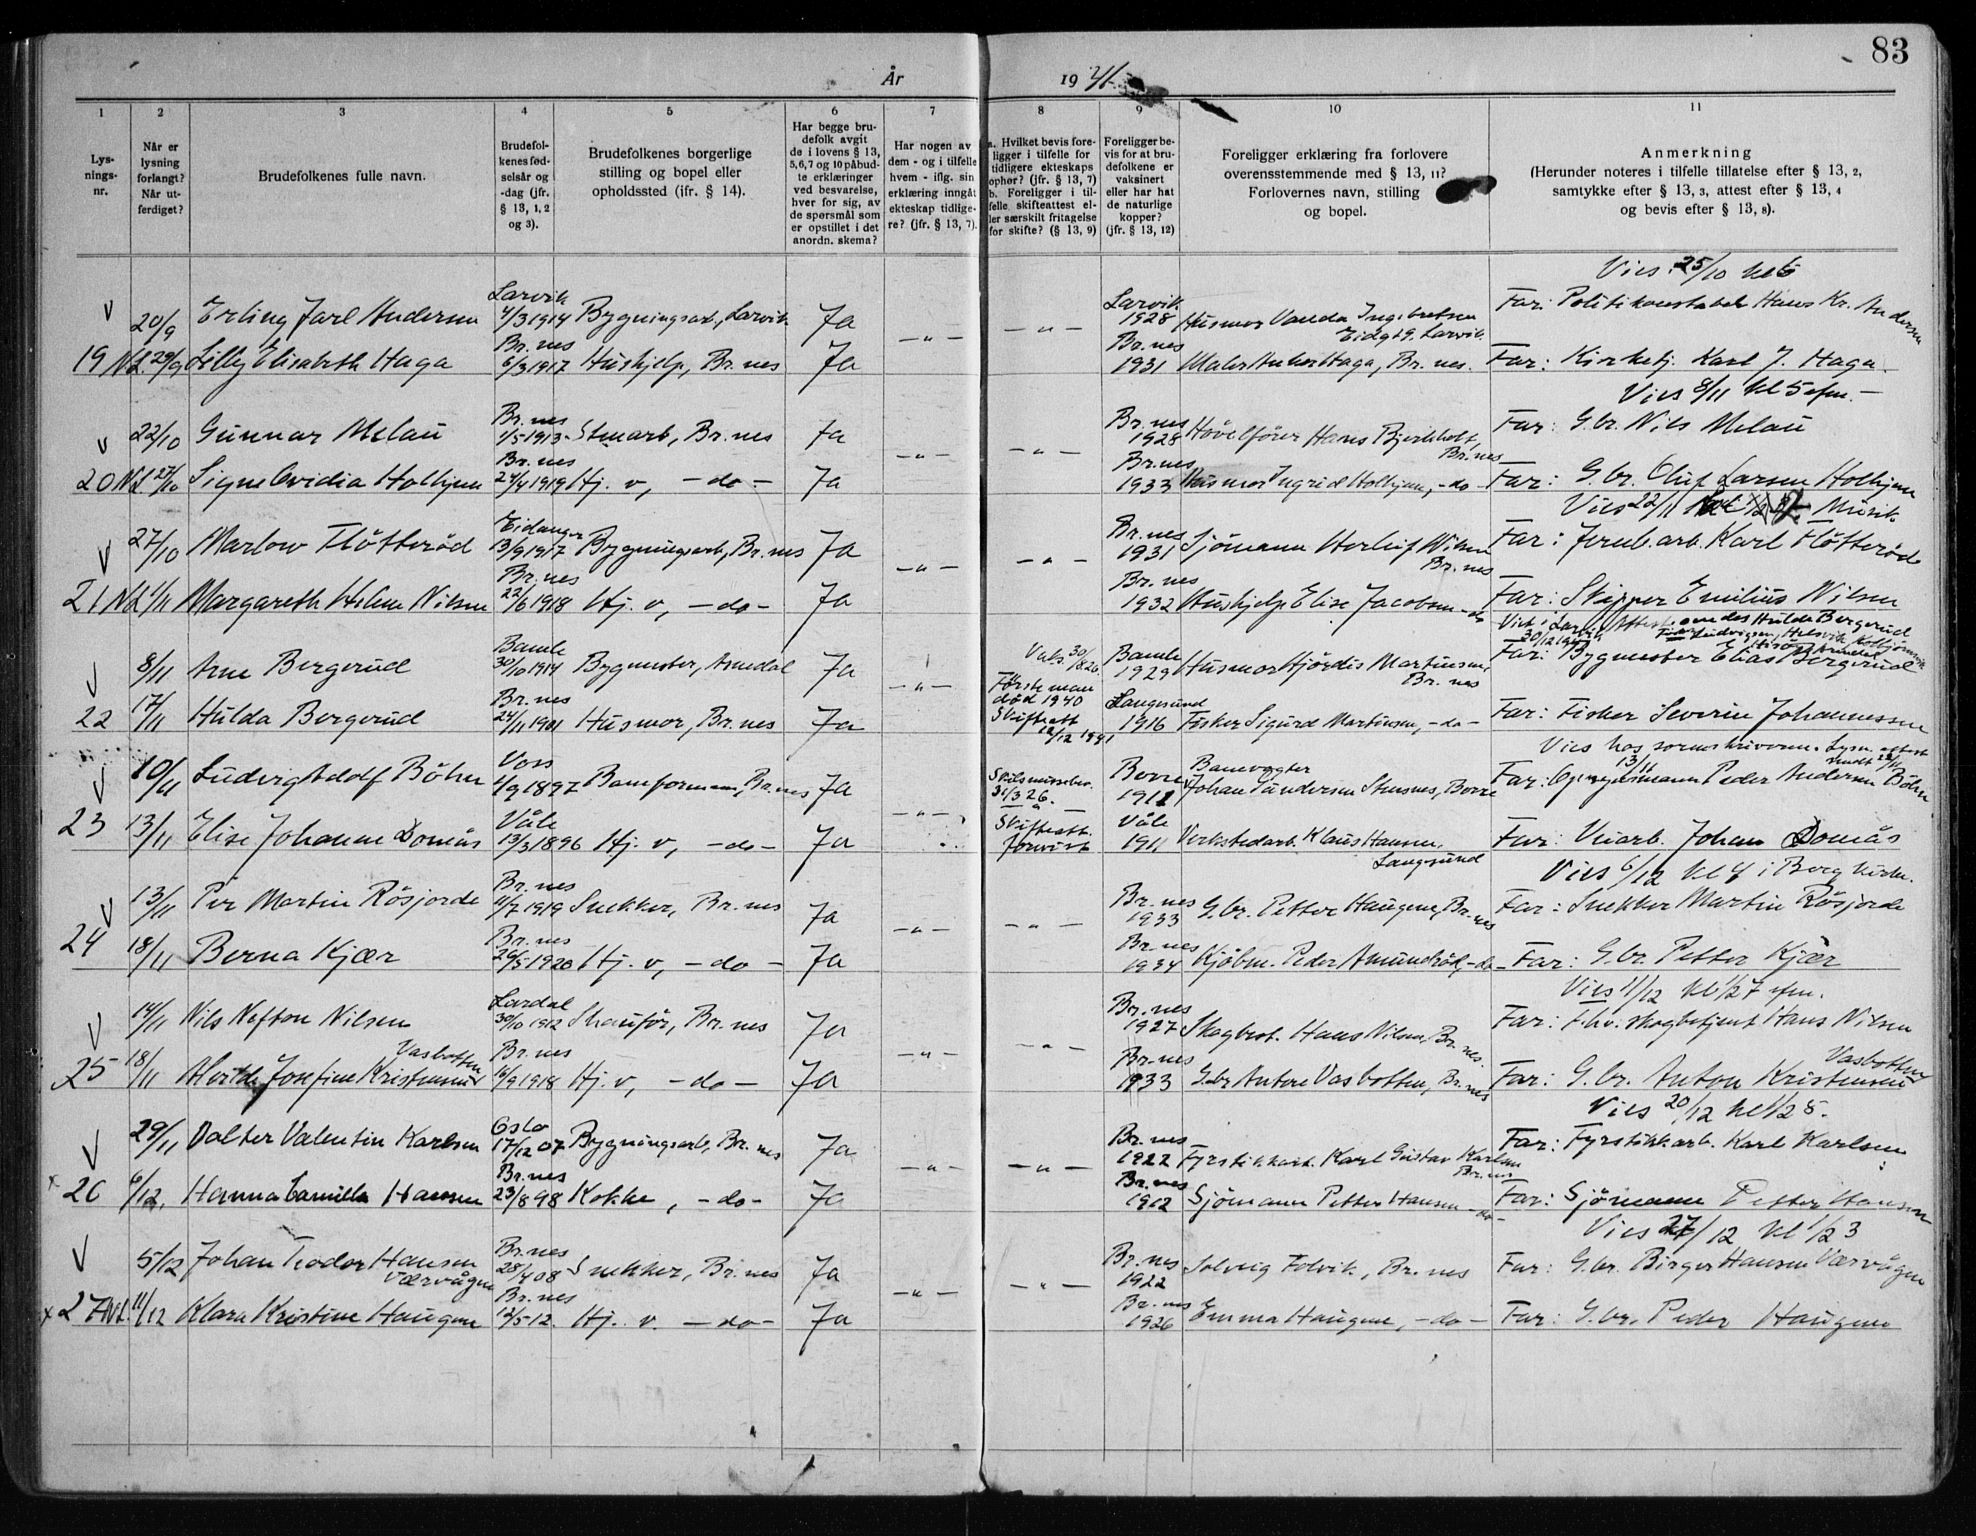 83
År 1941
1 2 3 4 5 6 7 8 9 10 11
Lys-
nings-
nr.
Når er
lysning
forlangt?
Når ut-
ferdiget?
Brudefolkenes fulle navn.
Brudefol-
kenes fød-
selsår og
-dag (jfr.
§ 13, 1, 2
og 3).
Brudefolkenes borgerlige
stilling og bopel eller
opholdssted (ifr. § 14).
Har begge bru-
defolk avgit
de i lovens § 13,
5,6,7 og 10 påbud-
te erklæringer
ved besvarelse,
hver for sig, av
de spørsmål som
er opstillet i det
anordn. skema?
Har nogen av
dem - og i tilfelle
hvem - iflg. sin
erklæring inngått
ekteskap tidlige-
re? (jfr. § 13, 7).
a. Hvilket bevis fore-
ligger i tilfelle for
tidligere ekteskaps
ophør? (jfr. § 13, 7)
b. Foreligger i til-
felle skifteattest el-
ler særskilt fritagelse
for skifte? (§ 13, 9)
Foreligger be-
vis for at bru-
defolkene er
vaksinert
eller har hat
de naturlige
kopper?
(jfr. § 13, 12)
Foreligger erklæring fra forlovere
overensstemmende med § 13, 11?
Forlovernes navn, stilling
og bopel.
Anmerkning
(Herunder noteres i tilfelle tillatelse efter § 13, 2,
samtykke efter § 13, 3, attest efter § 13, 4
og bevis efter § 13, 8).
Vies 25/10 kl 5
V 20/9 Erling Jarl Andersen Larvik 4/3 1914 Bygningsarb., Larvik Ja Larvik 1928 Husmor Vanda Ingebretsen Eidgt 9. Larvik Far: Politikonstabel Hans Kr. Andersen
19 Nd. 29/9 Lilly Elisabeth Haga Br.nes 6/3 1917 Hushjelp, Br.nes Ja — " — — " — Br.nes 1931 Maler Anker Haga, Br.nes. Far: Kirketj. Karl J. Haga.
Vies 8/11 kl 5 efm. —
V 22/10 Gunnar Melau Br.nes 1/5 1913 Stenarb, Br.nes Ja Br.nes 1928 Høvelfører Hans Bjerkholt, Br.nes Far: G.br. Nils Melau
20 Nd. 27/10 Signe Ovidia Holhjem Br.nes 24/4 1919 Hj. v, — do — Ja — " — — " — Br.nes 1933 Husmor Ingrid Holhjem, — do — Far: G.br. Oluf Larsen Holhjem
Vies 22/11 Musik
V 27/10 Marlow Fløtterød Eidanger 13/9 1917 Bygningsarb, Br.nes Ja Br.nes 1931 Sjømann Herleif Nilsen Br.nes Far: Jernb.arb. Karl Fløtterød
21 Nd. 1/11 Margareth Helene Nilsen Br.nes 22/6 1918 Hj. v, — do — Ja — " — — " — Br.nes 1932 Hushjelp Elise Jacobsen — do Far: Skipper Emilius Nilsen
Vies i Larvik 30/12 1941 Attest om des Hulda Bergerud
V 8/11 Arne Bergerud Bamle 30/10 1914 Bygmester, Asmedal Ja Bamle 1929 Husmor Hjørdis Martinsen, Br.nes Far: Bygmester Elias Bergerud
22 17/11 Hulda Bergerud Br.nes 24/11 1901 Husmor, Br.nes Ja — " — Første man død 1940 Skifteatt 12/12 1941 Langesund 1916 Fisker Sigurd Martinsen, — do — Far: Fisker Severin Johannessen
Vies hos sorenskriveren.
V 10/11 Ludvig Adolf Böhn Voss 1/9 1897 Baneformann, Br.nes Ja Skilsmissebev. 31/3 26. Borre 1911 Banevogter Johan Sandersen Stensnes, Borre Far: Peder Andersen Böhn
23 13/11 Elise Johanne Domås Våle 13/3 1896 Hj. v, — do — Ja — " — Skifteatt. forevist Våle 1911 Verkstedarb. Klaus Hansen, Langesund Far: Veiarb. Johan Domås
Vies 6/12 kl 4 i Berg kirke.
V 13/11 Per Martin Rösjorde Br.nes 11/7 1919 Snekker, Br.nes Ja Br.nes 1933 G.br. Petter Haugene, Br.nes Far: Snekker Martin Rösjorde
24 18/11 Berna Kjær Br.nes 29/5 1920 Hj. v, — do — Ja — " — — " — Br.nes 1934 Kjøbm. Peder Amundrød, — do — Far: G.br. Petter Kjær
Vies 11/12 kl 1/2 7 efm.
V 14/11 Nils Nefton Nilsen Lardal 30/10 1912 Shaufør, Br.nes Ja Br.nes 1927 Skogbest. Hans Nilsen, Br.nes. Far: f.hv. skogbetjent Hans Nilsen
25 18/11 Herta Josefine Kristensen Vasbotten Br.nes 16/9 1918 Hj. v, — do — Ja — " — — " — Br.nes 1933 G.br Antore Vasbotten, Br.nes Far: G.br. Anton Kristensen Vasbotten
Vies 20/12 kl 1/2 5.
V 29/11 Valter Valentin Karlsen Oslo 17/12 07 Bygningsarb, Br.nes Ja Br.nes 1922 Fyrstikkarb. Karl Gustav Karlsen Br.nes Far: Fyrstikkarb. Karl Karlsen
x 26 6/12. Hanna Camilla Hansen Br.nes 23/8 98 Kokke, — do — Ja — " — — " — Br.nes 1912 Sjømann Petter Hansen — do — Far: Sjømann Petter Hansen
Vies 27/12 kl 1/2 3
V 5/12 Johan Teodor Hansen Værvågen Br.nes 28/4 08 Snekker, Br.nes Ja Br.nes 1922 Solveig Folvik, Br.nes Far: G.br. Birger Hansen Værvågen
x 27 Nd. 11/12 Klara Kristine Haugene Br.nes 12/5 12. Hj. v. — do — Ja — " — — " — Br.nes 1926 Emma Haugene, — do — Far: G.br. Peder Haugene